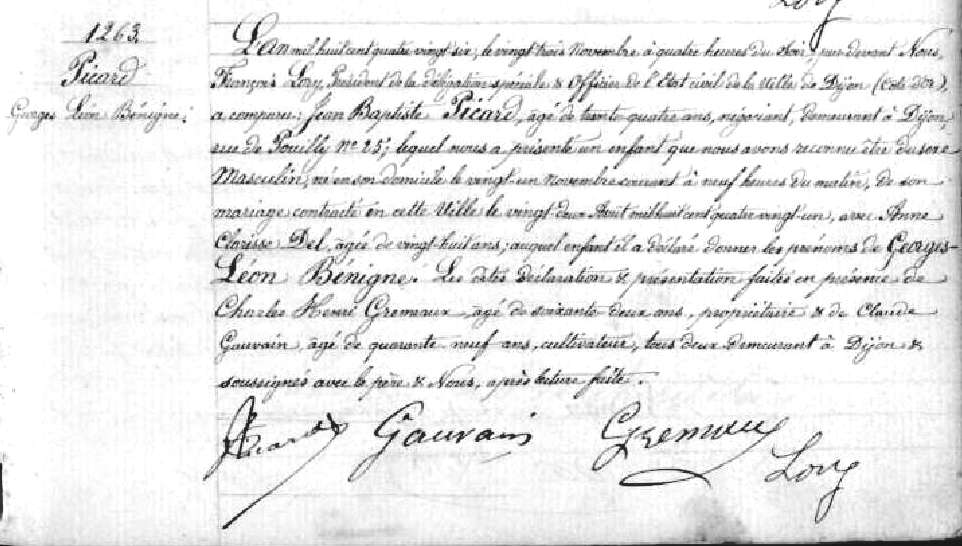 Lory
1263.
Picard
Georges Léon Bénigne.
L'an mil huit cent quatre vingt six, le vingt trois Novembre à quatre heures du soir, par devant Nous,
François Lory, Président de la délégation spéciale & Officier de l'Etat civil de la Ville de Dijon (Côte d'Or),
a comparu: Jean Baptiste Picard, âgé de trente quatre ans, négociant, demeurant à Dijon,
rue de Pouilly No 25; lequel nous a présenté un enfant que nous avons reconnu être du sexe
Masculin, né en son domicile le vingt-un novembre courant à neuf heures du matin, de son
mariage contracté en cette Ville le vingt deux Août mil huit cent quatre vingt-un, avec Anne
Clarisse Del, âgée de vingt-huit ans; auquel enfant il a déclaré donner les prénoms de Georges-
Léon Bénigne. Les dites déclaration & présentation faites en présence de
Charles Henri Gremaux, âgé de soixante-deux ans, propriétaire & de Claude
Gauvain, âgé de quarante neuf ans, cultivateur, tous deux demeurant à Dijon &
soussignés avec le père & Nous, après lecture faite.
Picard Gauvain Gremaux
Lory